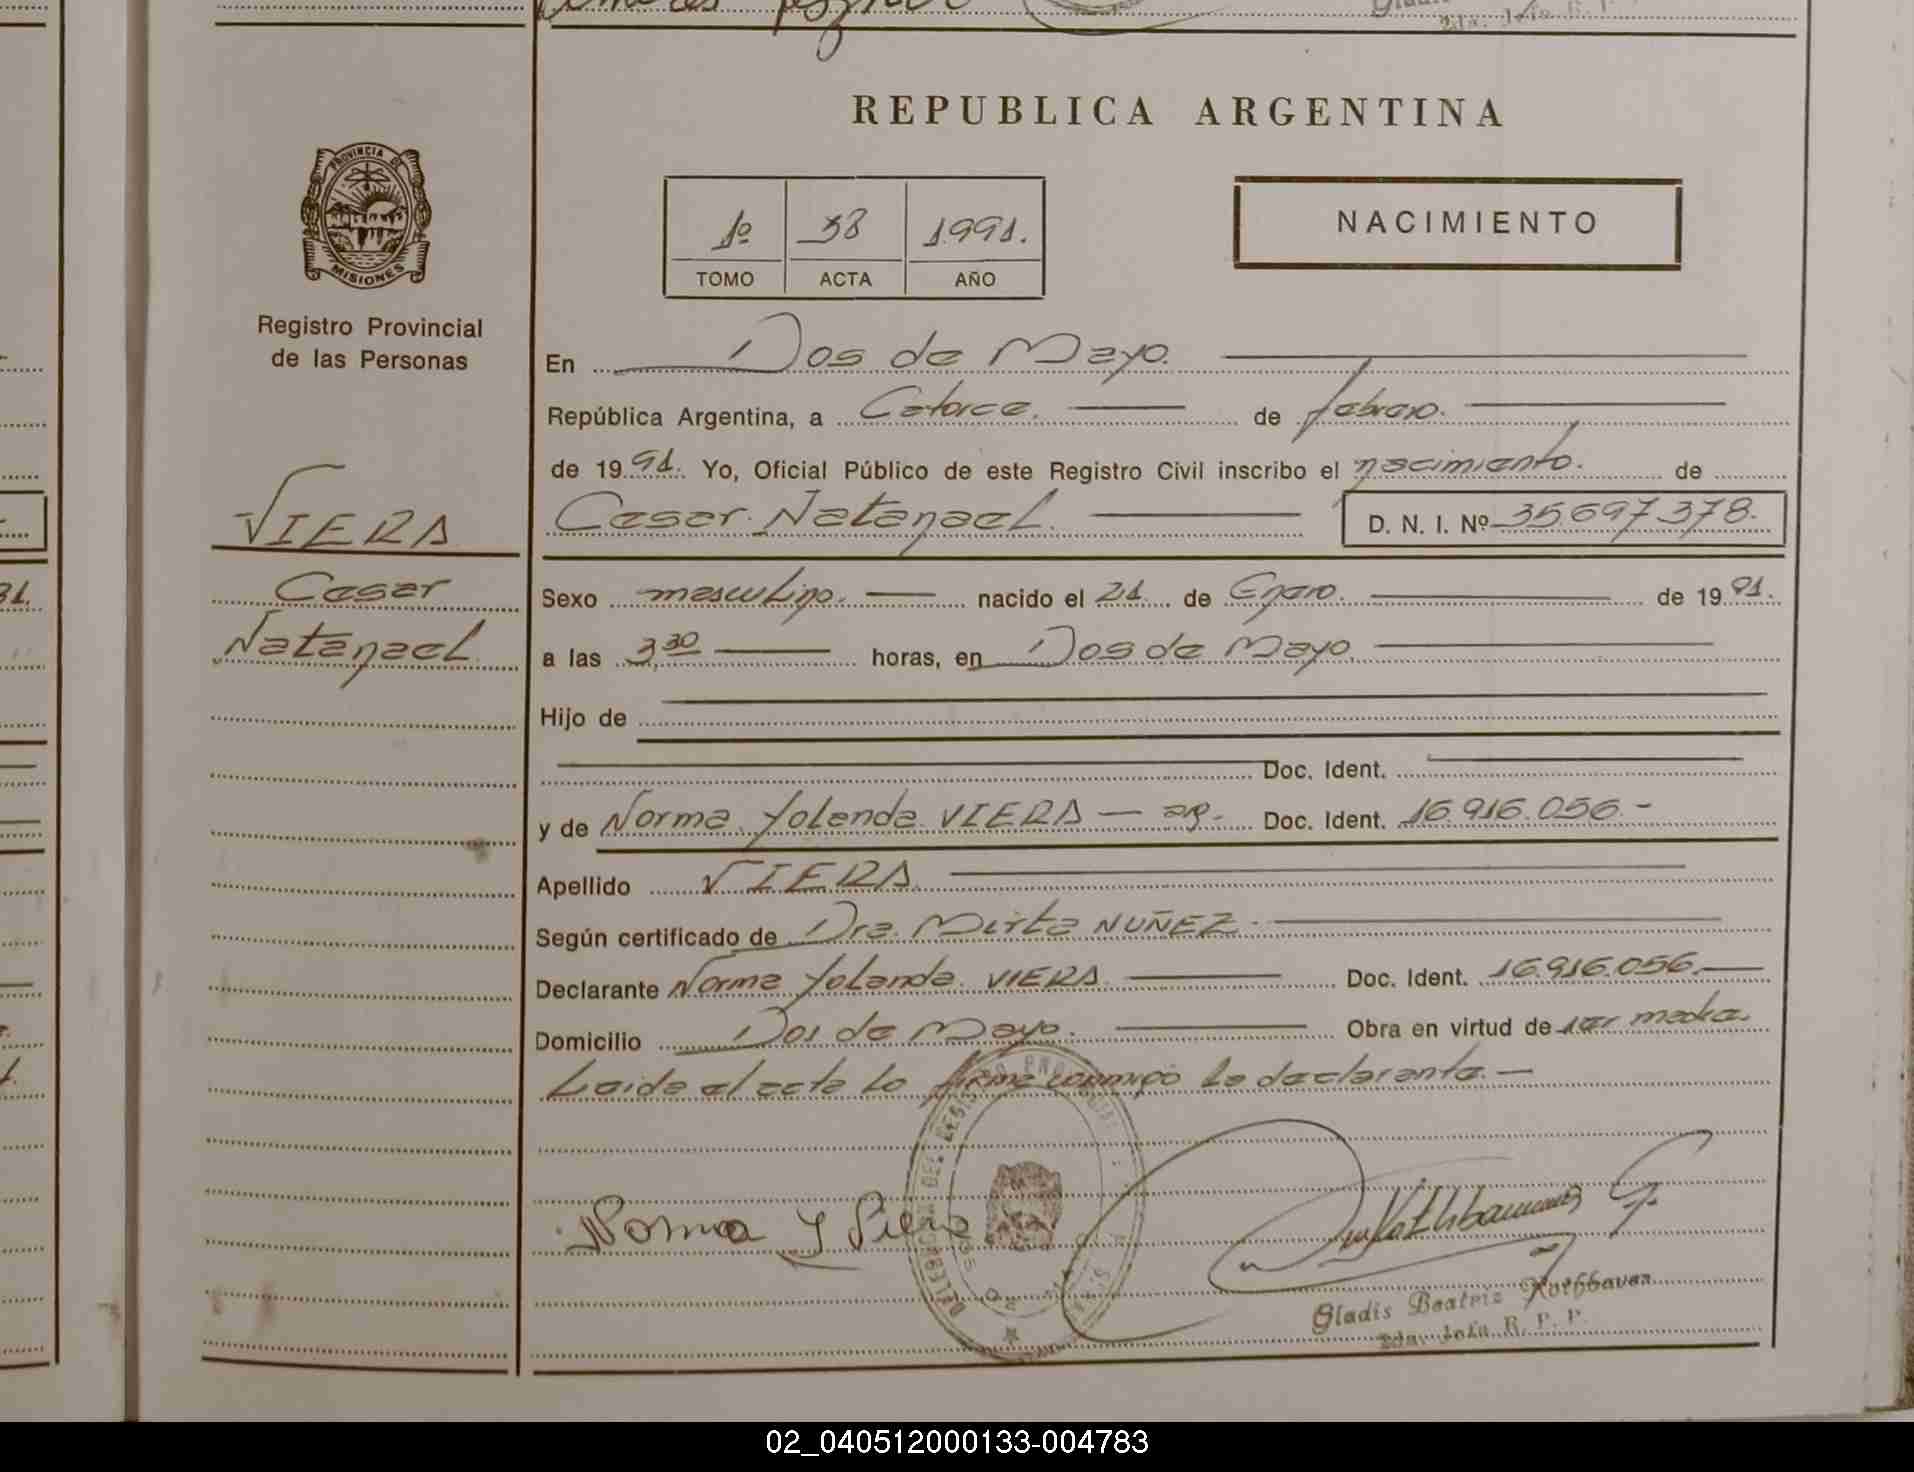 REPUBLICA ARGENTINA
PROVINCIA DE
MISIONES
Registro Provincial
de las Personas
1º 38 1991.
TOMO ACTA AÑO
NACIMIENTO
En Dos de Mayo.
República Argentina, a Catorce. de febrero.
de 1991. Yo, Oficial Público de este Registro Civil inscribo el nacimiento. de
VIERA
Cesar Natanael. D. N. I. Nº 35.697.378.
Cesar
Natanael
Sexo masculino. nacido el 21. de Enero. de 1991.
a las 3,30 horas, en Dos de Mayo.
Hijo de
Doc. Ident.
y de Norma Yolanda VIERA — ar. Doc. Ident. 16.916.056 -
Apellido VIERA
Según certificado de Dra. Mirta NUÑEZ.
Declarante Norma Yolanda VIERA Doc. Ident. 16.916.056.
Domicilio Dos de Mayo. Obra en virtud de ser madre.
Leida el acta lo firma conmigo la declarante. —
Norma Y Viera
Gladis Beatriz Rothbauer
2da. Jefa R. P. P.
02_040512000133-004783